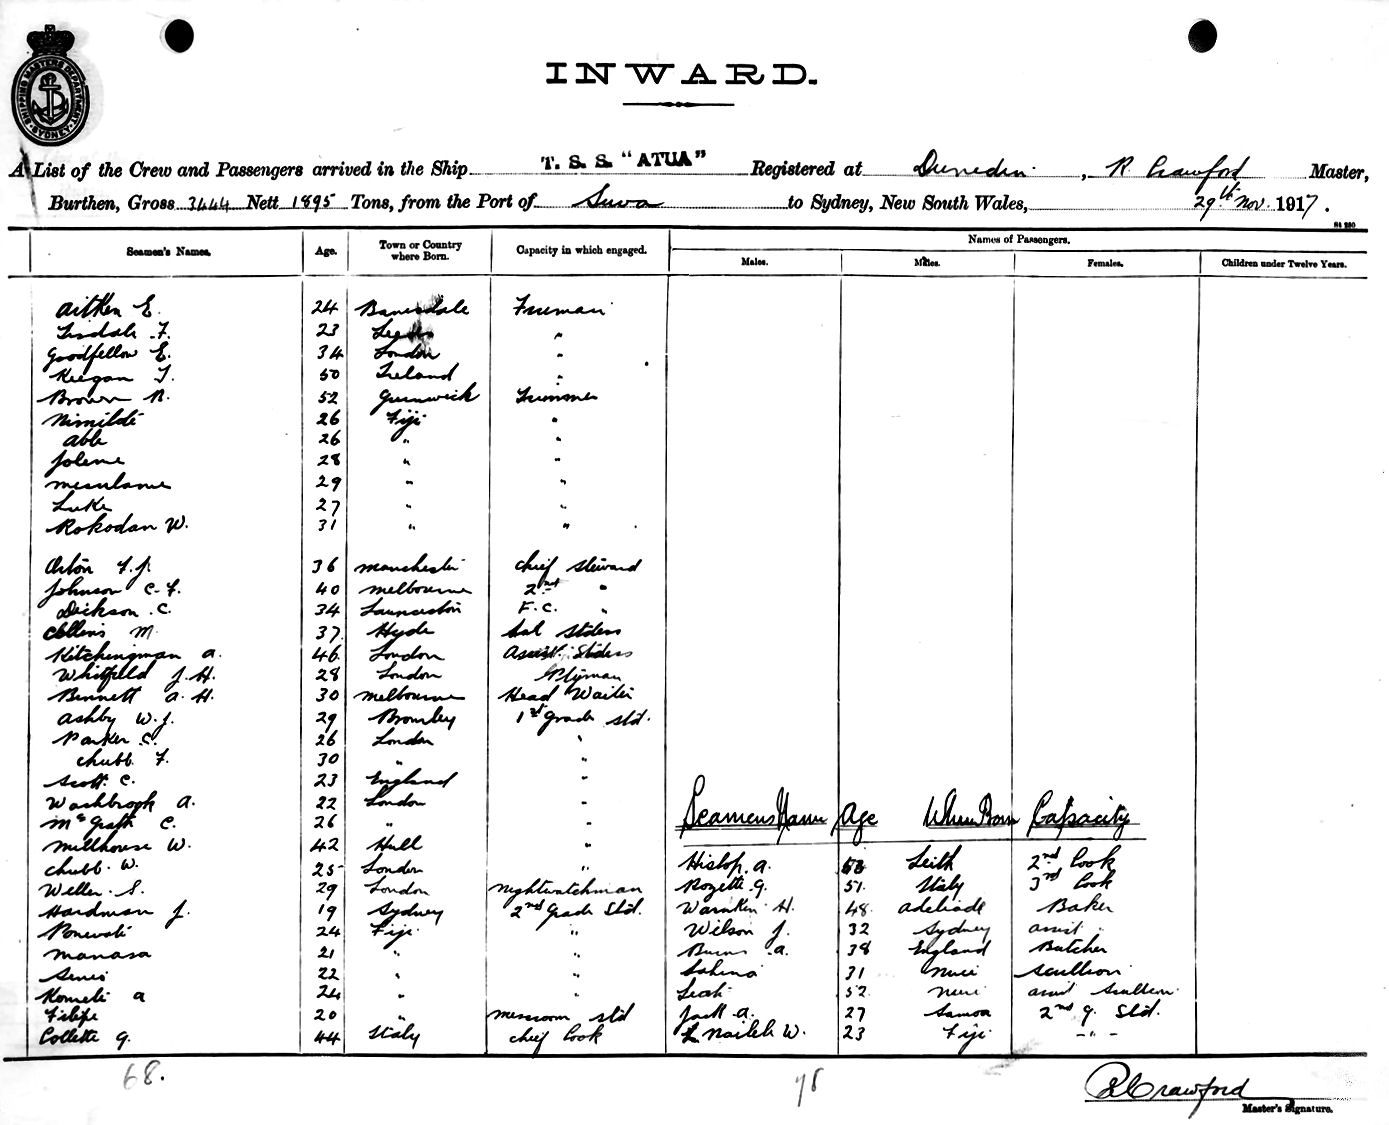 SHIPPING MASTERS DEPARTMENT SYDNEY
INWARD.
A List of the Crew and Passengers arrived in the Ship T. S. S. "ATUA" Registered at Dunedin, R. Crawford Master,
Burthen, Gross 3444 Nett 1895 Tons, from the Port of Suva to Sydney, New South Wales, 29th Nov. 1917.
Names of Passengers.
Seamen's Names. Age. Town or Country where Born. Capacity in which engaged. Males. Males. Females. Children under Twelve Years.
Aitken E. 24 Bairnsdale Fireman
Tisdale F. 23 Leeds "
Goodfellow E. 34 London "
Keegan T. 50 Ireland "
Brown R. 52 Greenwich Trimmer
Nimilote 26 Fiji "
Able 26 " "
Jolene 28 " "
Mesulame 29 " "
Luke 27 " "
Rokodan W. 31 " "
Orton F. J. 36 Manchester Chief Steward
Johnson C. F. 40 Melbourne 2nd "
Dickson C. 34 Launceston F. C. "
Collins M. 37 Hyde Sal Stdess
Kitchingman A. 46 London Assist. Stdess
Whitfield J. H. 28 London
Bennett A. H. 30 Melbourne Head Waiter
Ashby W. J. 29 Bromley 1st Grade Std.
Parker C. 26 London "
Chubb F. 30 " "
Scott C. 23 England "
Washbrook A. 22 London "
McGrath C. 26 " "
Seamens Name Age Where Born Capacity
Millhouse W. 42 Hull "
Chubb W. 25 London "
Hislop A. 53 Leith 2nd Cook
Weller S. 29 London Nightwatchman
Rozetti G. 51 Italy 3rd Cook
Hardman J. 19 Sydney 2nd Grade Std.
Warnken H. 48 Adelaide Baker
Ponevati 24 Fiji "
Wilson J. 32 Sydney assist "
Manasa 21 " "
Burns A. 38 England Butcher
22 " "
31 Niue Scullion
Kometi A 24 " "
52 Niue assist Scullion
Filipe 20 " Messroom Std
Jack A. 27 Samoa 2nd G. Std.
Collette G. 44 Italy Chief Cook
W. 23 Fiji - " -
68.
78
R Crawford
Master's Signature.